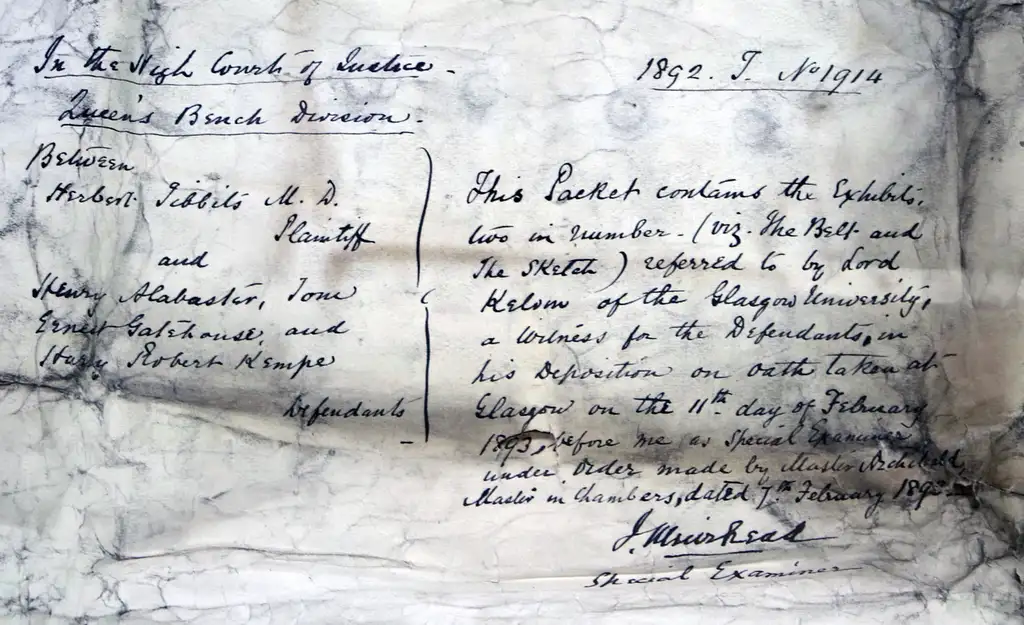 In the High Court of Justice -
1892. T. No 1914
Queen's Bench Division -
Between
Herbert Tibbits M. D.
Plaintiff
and
Henry Alabaster, Tom
Ernest Gatehouse, and
Harry Robert Kempe
Defendants
This Packet contains the Exhibits,
two in number - (viz. The Belt and
The Sketch) referred to by Lord
Kelvin of the Glasgow University,
a Witness for the Defendants, in
his Deposition on oath taken at
Glasgow on the 11th day of February
1893, before me as Special Examiner
under Order made by Master Archibald,
Master in Chambers, dated 7th February
J. Muirhead
Special Examiner